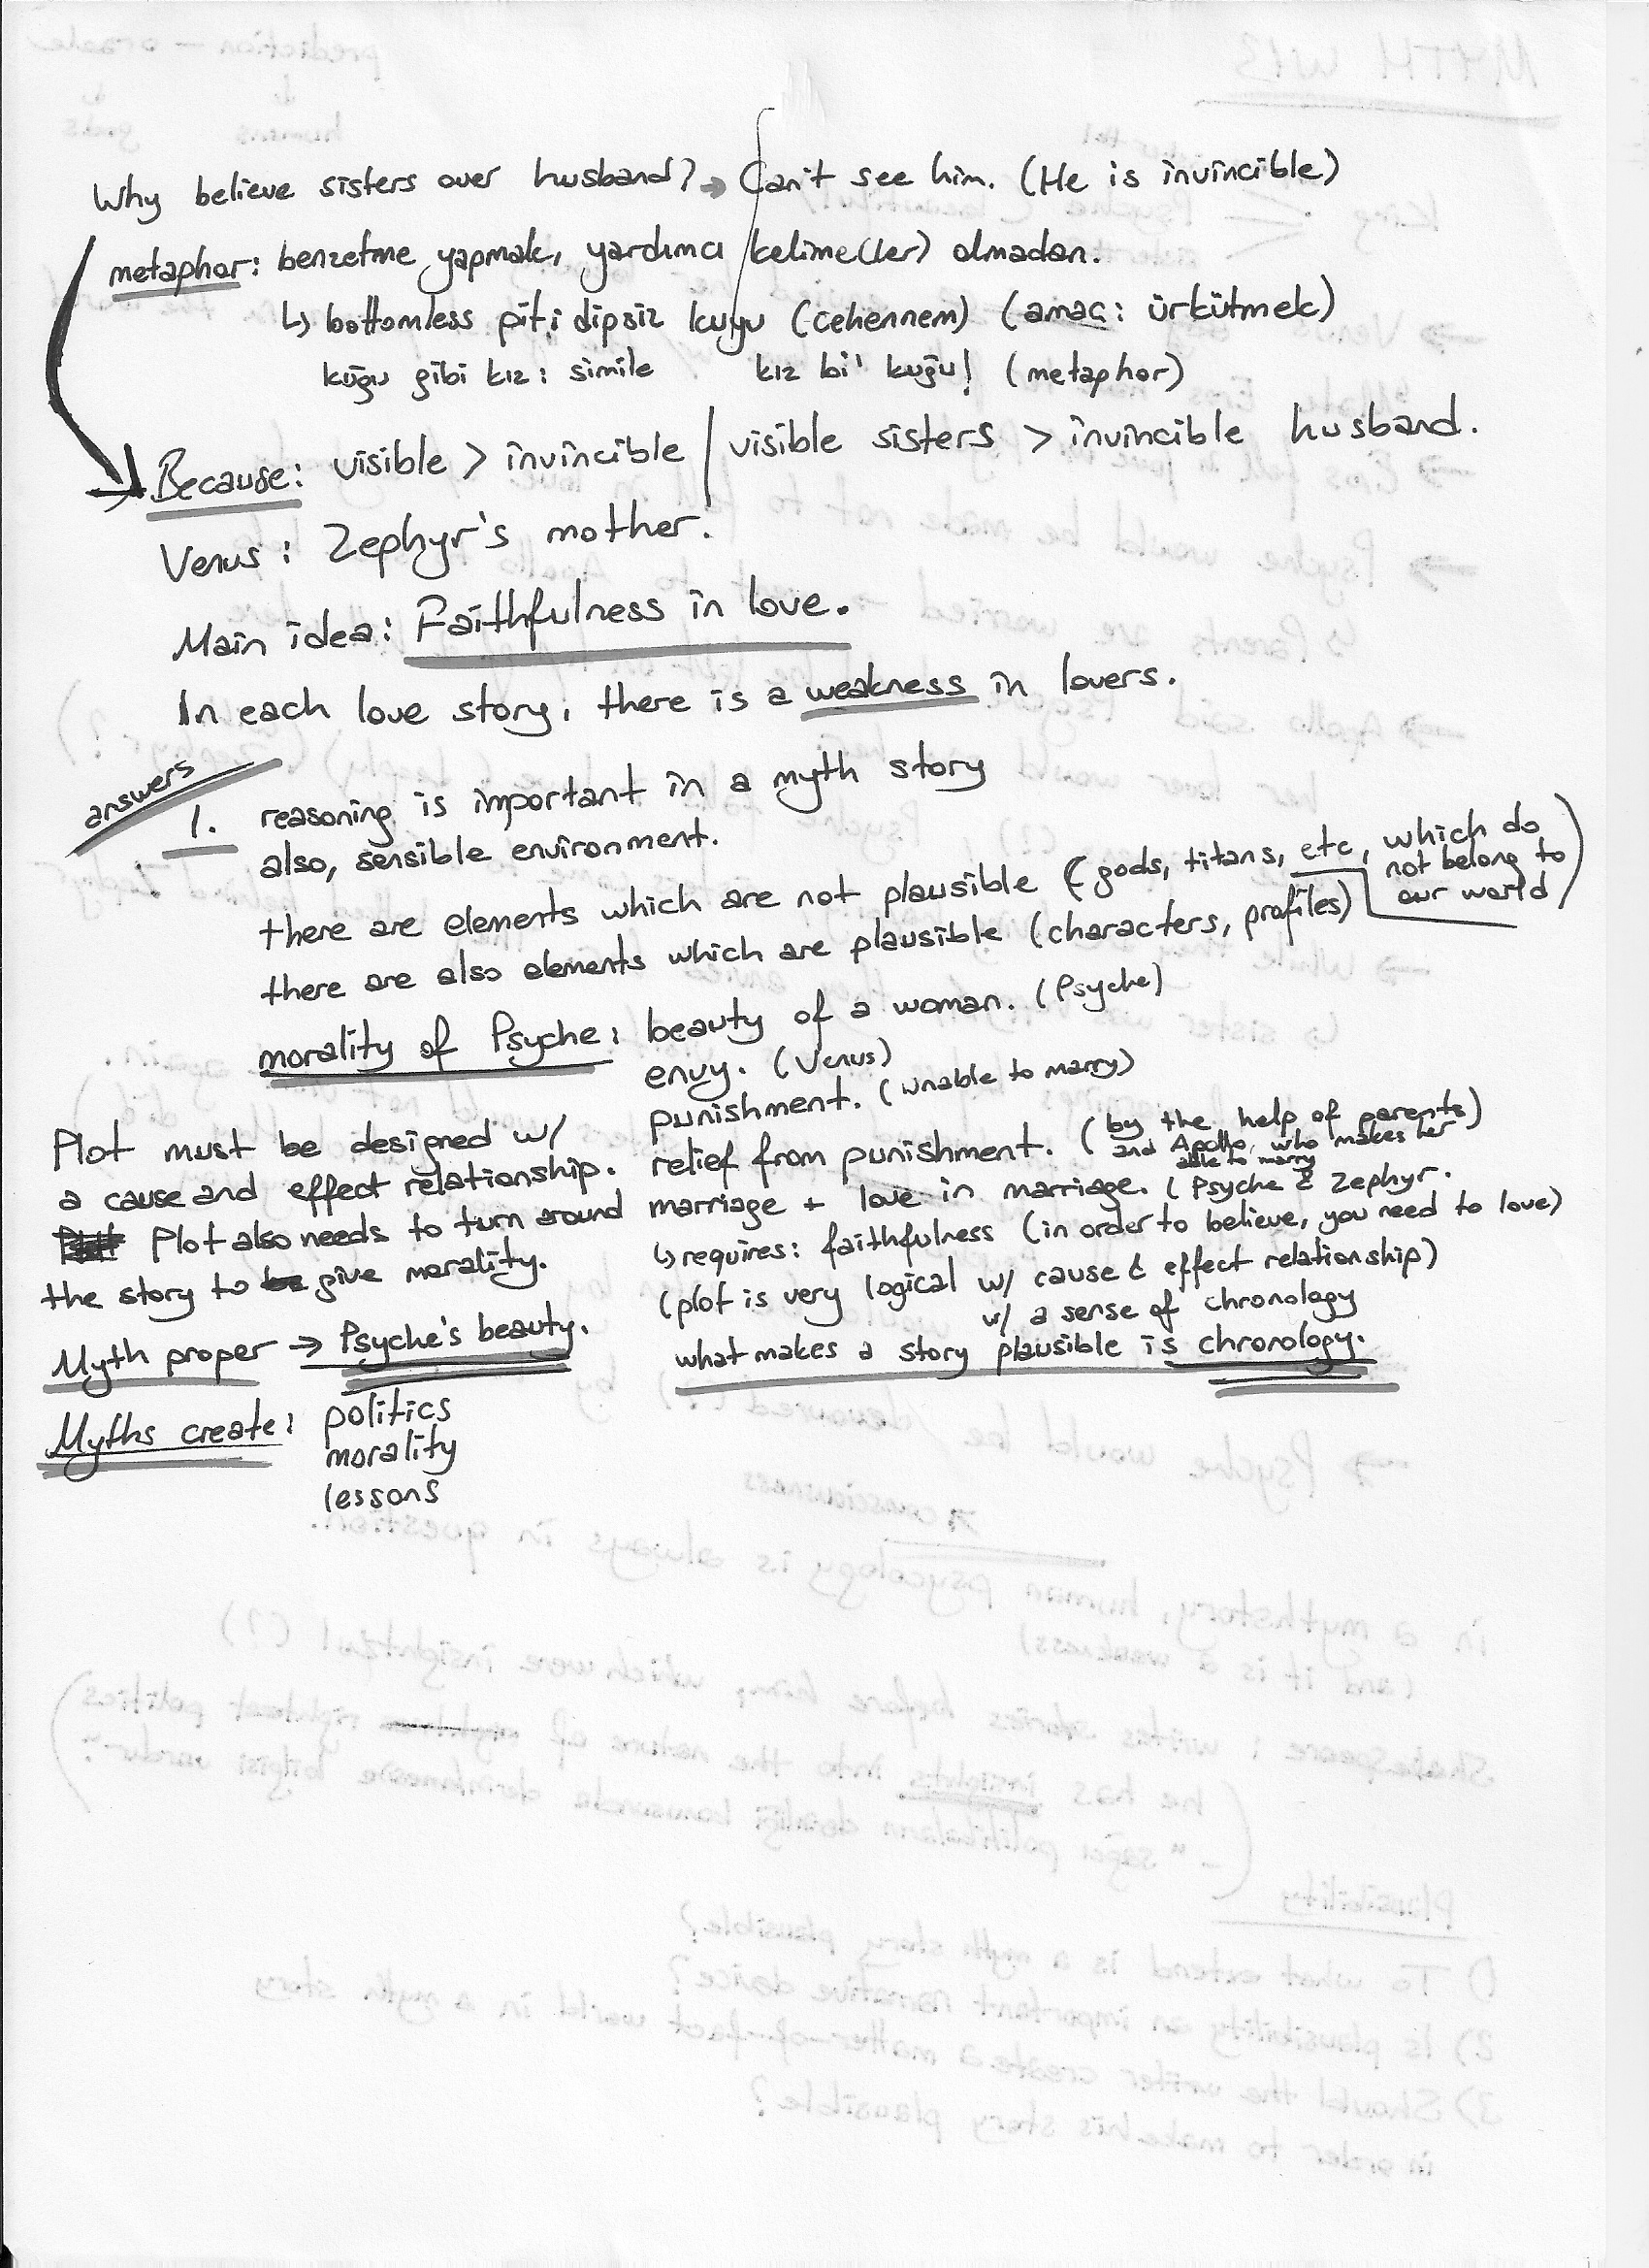 Why believe sisters over husband? → Can't see him. (He is invincible)
metaphor: benzetme yapmak, yardımcı kelime(ler) olmadan.
↳ bottomless pit; dipsiz kuyu (cehennem) (amaç: ürkütmek)
kuğu gibi kız: simile kız bi' kuğu! (metaphor)
Because: visible > invincible / visible sisters > invincible husband.
Venus: Zephyr's mother.
Main idea: Faithfulness in love.
In each love story, there is a weakness in lovers.
answers
1. reasoning is important in a myth story
also, sensible environment.
there are elements which are not plausible (gods, titans, etc, which do
not belong to
our world)
there are also elements which are plausible (characters, profiles)
morality of Psyche: beauty of a woman. (Psyche)
envy. (Venus)
punishment. (unable to marry)
relief from punishment. (by the help of parents)
and Apollo, who makes her
able to marry
marriage + love in marriage. (Psyche & Zephyr.
↳ requires: faithfulness (in order to believe, you need to love)
(plot is very logical w/ cause & effect relationship)
w/ a sense of chronology
what makes a story plausible is chronology.
Plot must be designed w/
a cause and effect relationship.
Plot also needs to turn around
the story to be give morality.
Myth proper → Psyche's beauty.
Myths create: politics
morality
lessons